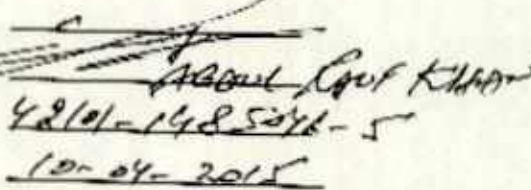 Abdul Rauf Khan
42101-1485041-5
10-04-2015